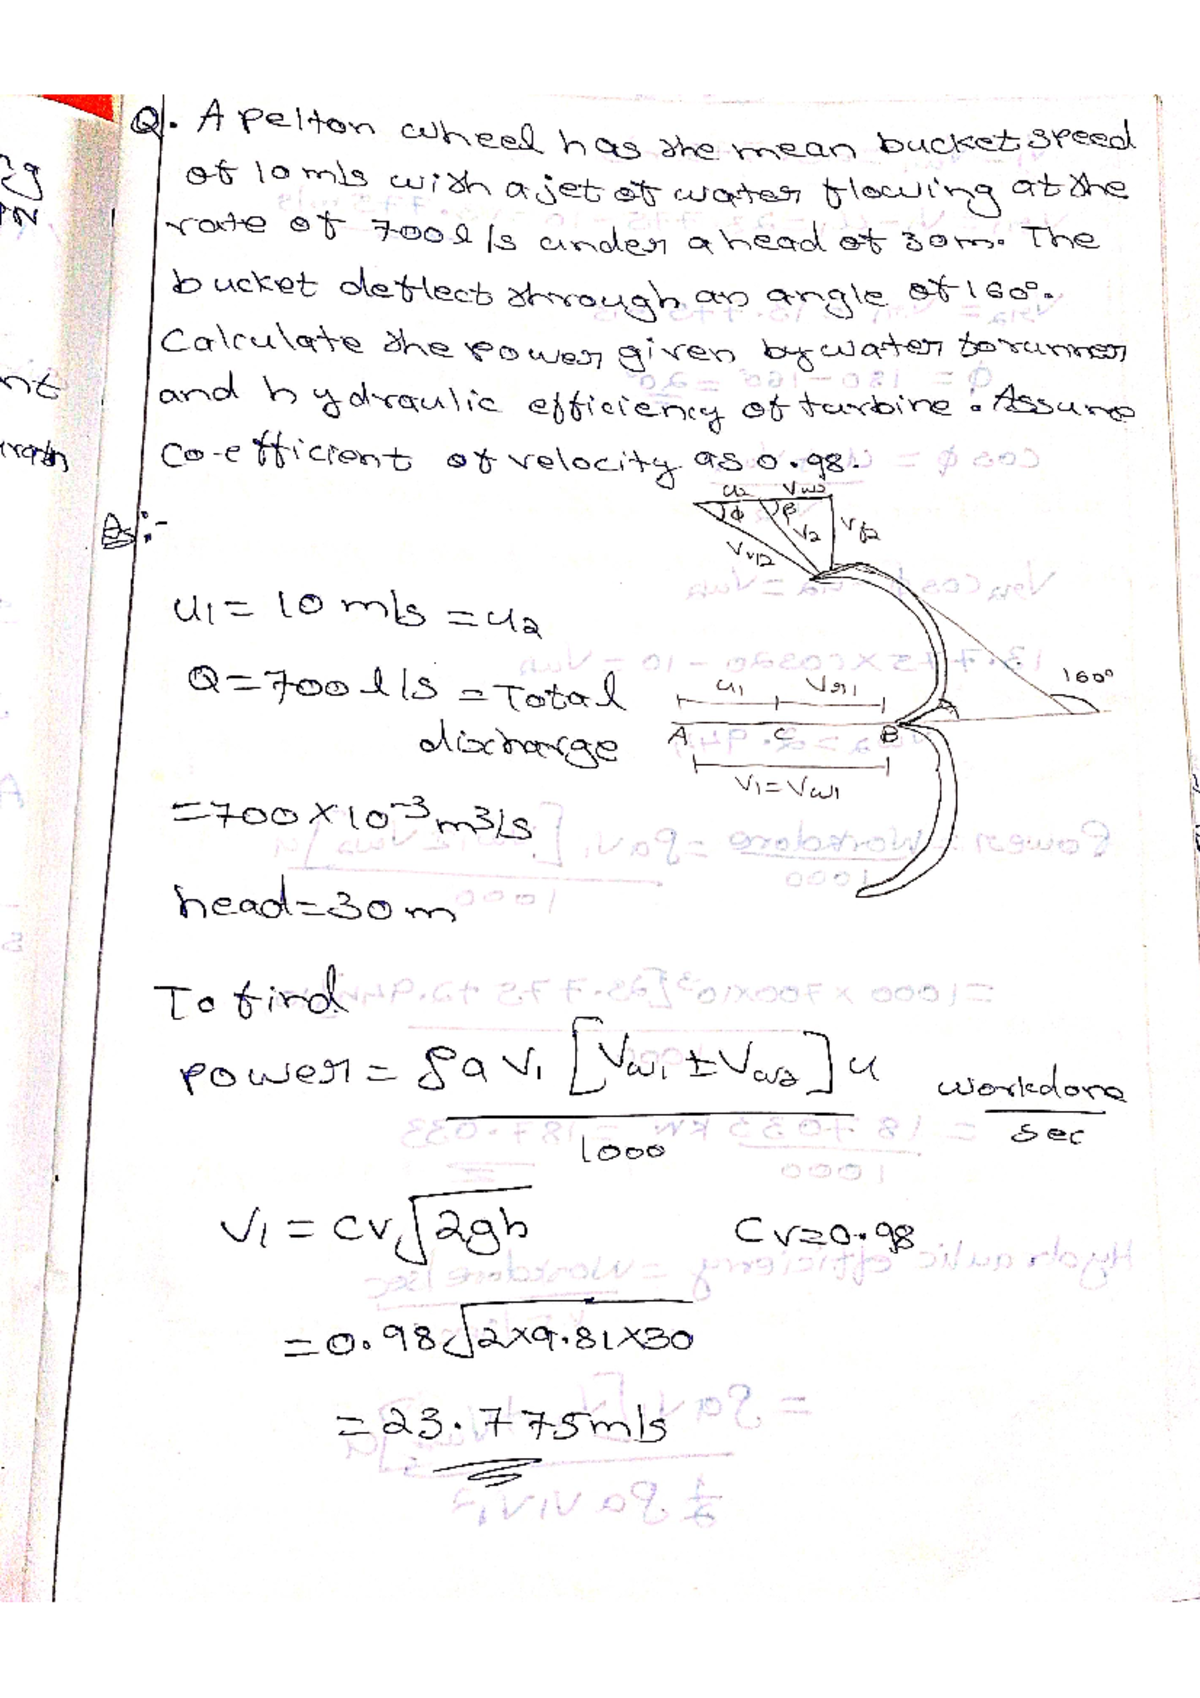 Q. A pelton wheel has the mean bucket speed
of 10 m/s with a jet of water flowing at the
rate of 700 l/s under a head of 30m. The
bucket deflect through an angle of 160°.
Calculate the power given by water to runner
and hydraulic efficiency of turbine. Assume
co-efficient of velocity as 0.98.
u2 Vw2
ϕ β V2 Vf2
Vr2
u1 = 10 m/s = u2
Q = 700 l/s = Total
discharge
160°
u1 Vr1
A C B
V1 = Vw1
= 700 × 10⁻³ m3/s
head = 30 m
To find
power = ρ a V1 [Vw1 ± Vw2] u
1000
workdone
sec
V1 = Cv √2gh
Cv = 0.98
= 0.98 √2×9.81×30
= 23.775 m/s